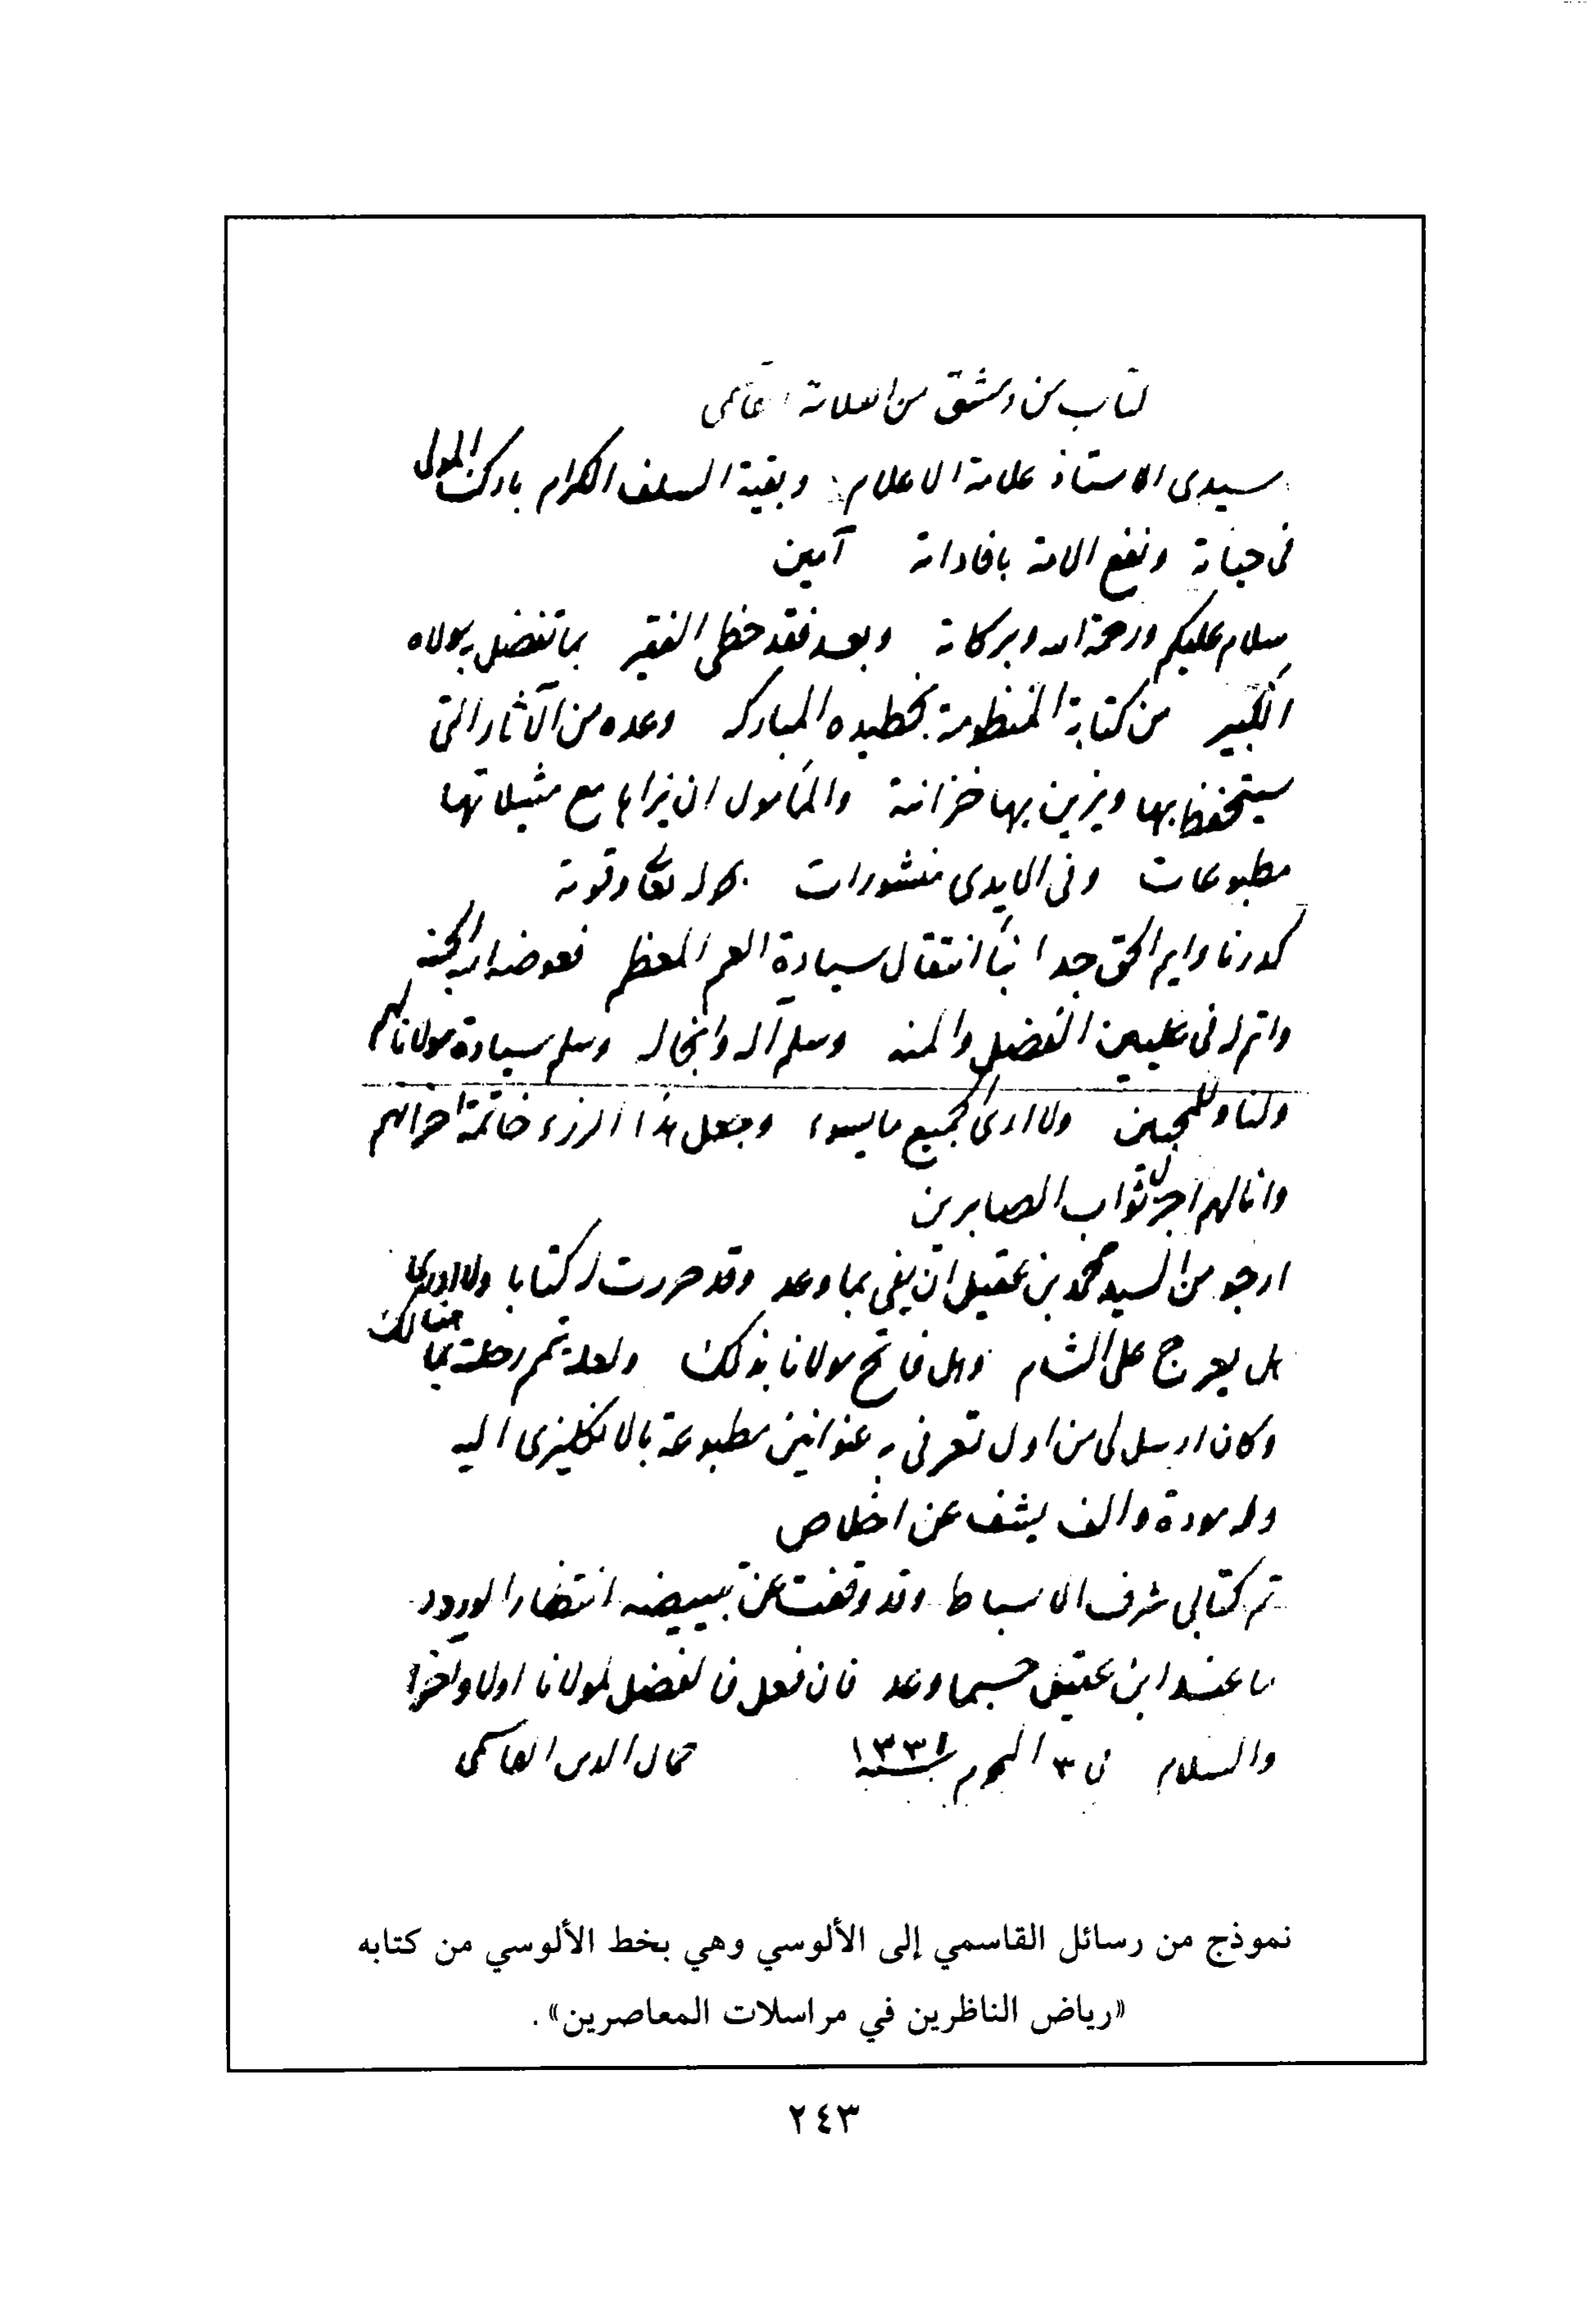 كتاب من دمشق من العلامة القاسمي
سيدى الاستاذ علامة الاعلام وبقية السلف الكرام بارك المولى
فى حياته ونفع الامة بافاداته آمين
سلام عليكم ورحمة الله وبركاته وبعد فقد حظى الفقير بما تفضل به مولاه
الكبير من كتابة المنظومة بخط يده المباركه وعده من الآثار التى
سيتحفظ بها ويزين بها خزانته والمأمول ان نراها مع مثيلاتها
مطبوعات وفى الايدى منشورات بحوله تعالى وقوته
كدرنا وايم الحق جدا نبأ انتقال سيادة العم المعظم فعوضه الله الجنه
واتم له فى عليين الفضل والمنه وسلم آله وانجاله وسلم سيادة مولانا لهم
ولنا وللمحبين ولا ارى الجميع ما يسوء وجعل هذا الرزء خاتمة احزانهم
وانالهم اجزل ثواب الصابرين
ارجو من السيد محمد بن عقيل ان يفى بما وعد وقد حررت له كتابا ولا ادرى
هل يعرج على الشام وهل فاتح مولانا بذلك ولعله تتم رحلته بما هنالك
وكان ارسل لى من اول تعرفى به عنوانين مطبوعة بالانكليزى اليه
وله مودة والف يشف عن اخلاص
تم كتابى شرف الاسباط وقد وقفت عن تبييضه انتظارا لورود
ما عند ابن عقيل حسبما وعد فان فعل فالفضل لمولانا اولا واخرا
والسلام فى ٣ المحرم سنة ١٣٣١ جمال الدين القاسمى
نموذج من رسائل القاسمي إلى الألوسي وهي بخط الألوسي من كتابه
«رياض الناظرين في مراسلات المعاصرين».
٢٤٣